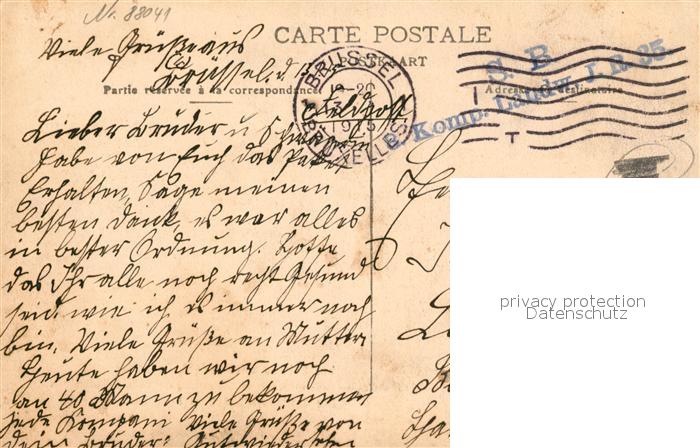 Nr. 88041
CARTE POSTALE
POSTKAART
Viele Grüße aus
Brüssel, d.
Feldpost
BRUSSEL
BRUXELLES
S. B.
Komp. Landw. I. R. 35
Partie réservée à la correspondance
Adresse du destinataire
Lieber Bruder u
habe von Euch das Paket
Erhalten, Sage meinen
besten Dank, es war alles
in bester Ordnung. Hoffe
das Ihr alle noch recht Gesund
seid wie ich es immer noch
bin. Viele Grüße an Mutter
Heute haben wir noch
an 40 Mann zu bekommen
jede Kompani Viele Grüße von
dein Bruder. Aufwiedersehen
privacy protection
Datenschutz